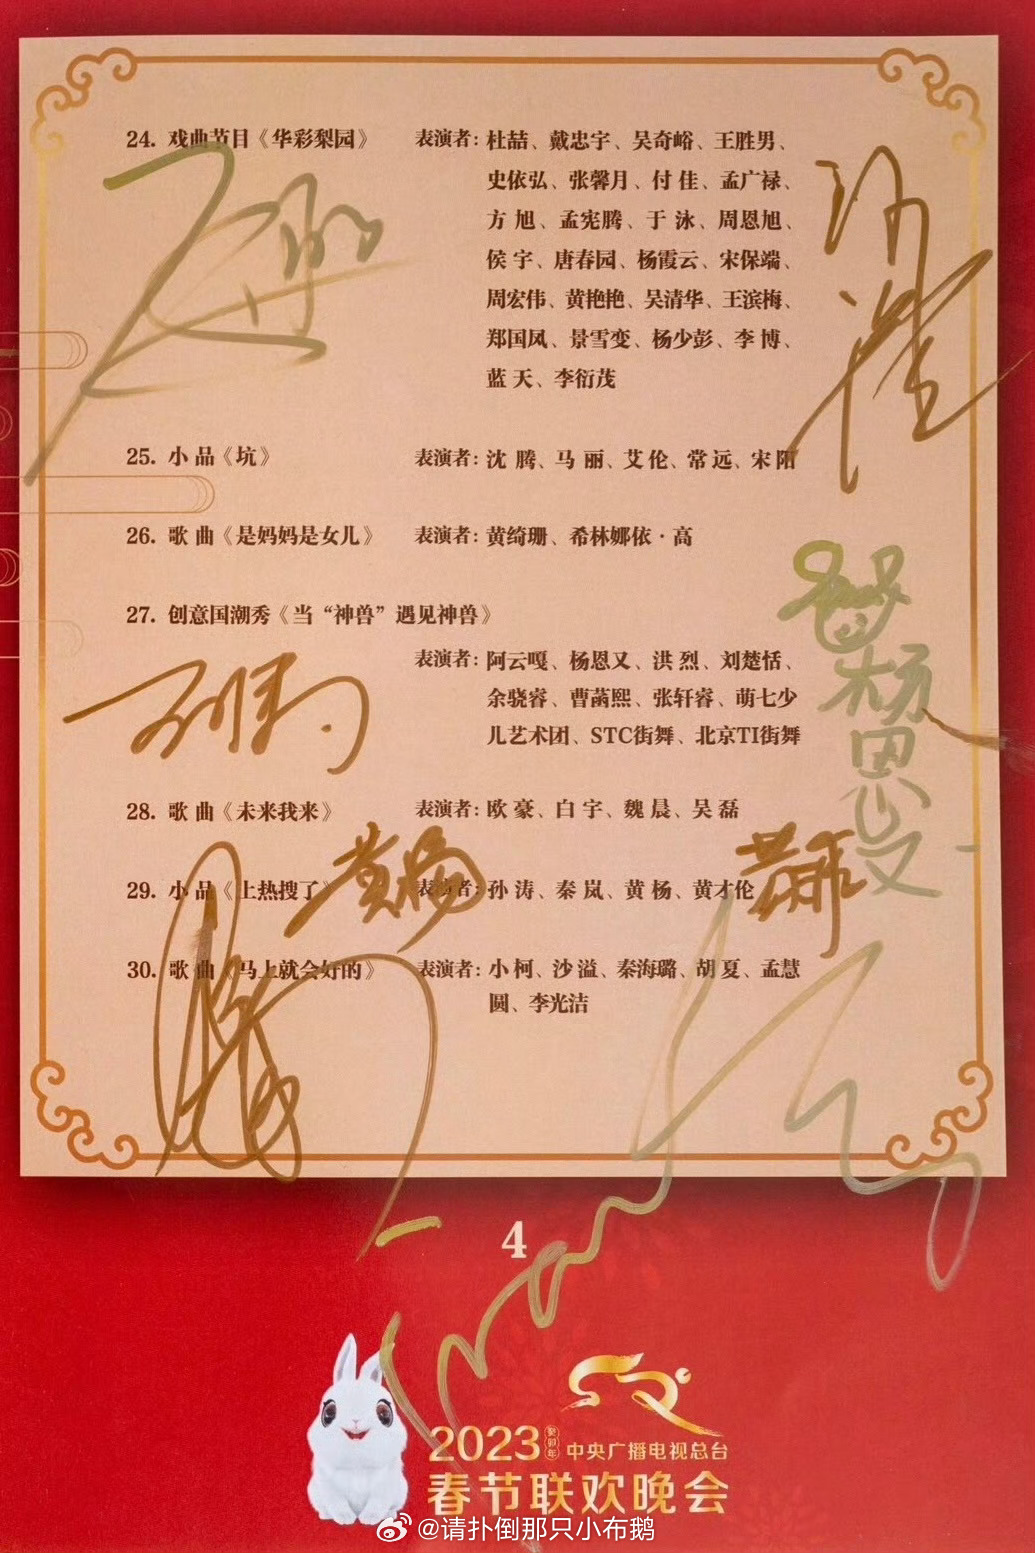 24. 戏曲节目《华彩梨园》 表演者：杜喆、戴忠宇、吴奇峪、王胜男、
史依弘、张馨月、付 佳、孟广禄、
方 旭、孟宪腾、于 泳、周恩旭、
侯 宇、唐春园、杨霞云、宋保端、
周宏伟、黄艳艳、吴清华、王滨梅、
郑国凤、景雪变、杨少彭、李 博、
蓝 天、李衍茂
25. 小 品《坑》 表演者：沈 腾、马 丽、艾 伦、常 远、宋 阳
26. 歌 曲《是妈妈是女儿》 表演者：黄绮珊、希林娜依·高
27. 创意国潮秀《当“神兽”遇见神兽》
表演者：阿云嘎、杨恩又、洪 烈、刘楚恬、
余骁睿、曹菡熙、张轩睿、萌七少
儿艺术团、STC街舞、北京TI街舞
杨恩又
28. 歌 曲《未来我来》 表演者：欧 豪、白 宇、魏 晨、吴 磊
29. 小 品《上热搜了》 表演者：孙 涛、秦 岚、黄 杨、黄才伦
黄杨
30. 歌 曲《马上就会好的》 表演者：小 柯、沙 溢、秦海璐、胡 夏、孟慧
圆、李光洁
4
2023 癸卯年 中央广播电视总台
春节联欢晚会
@请扑倒那只小布鹅